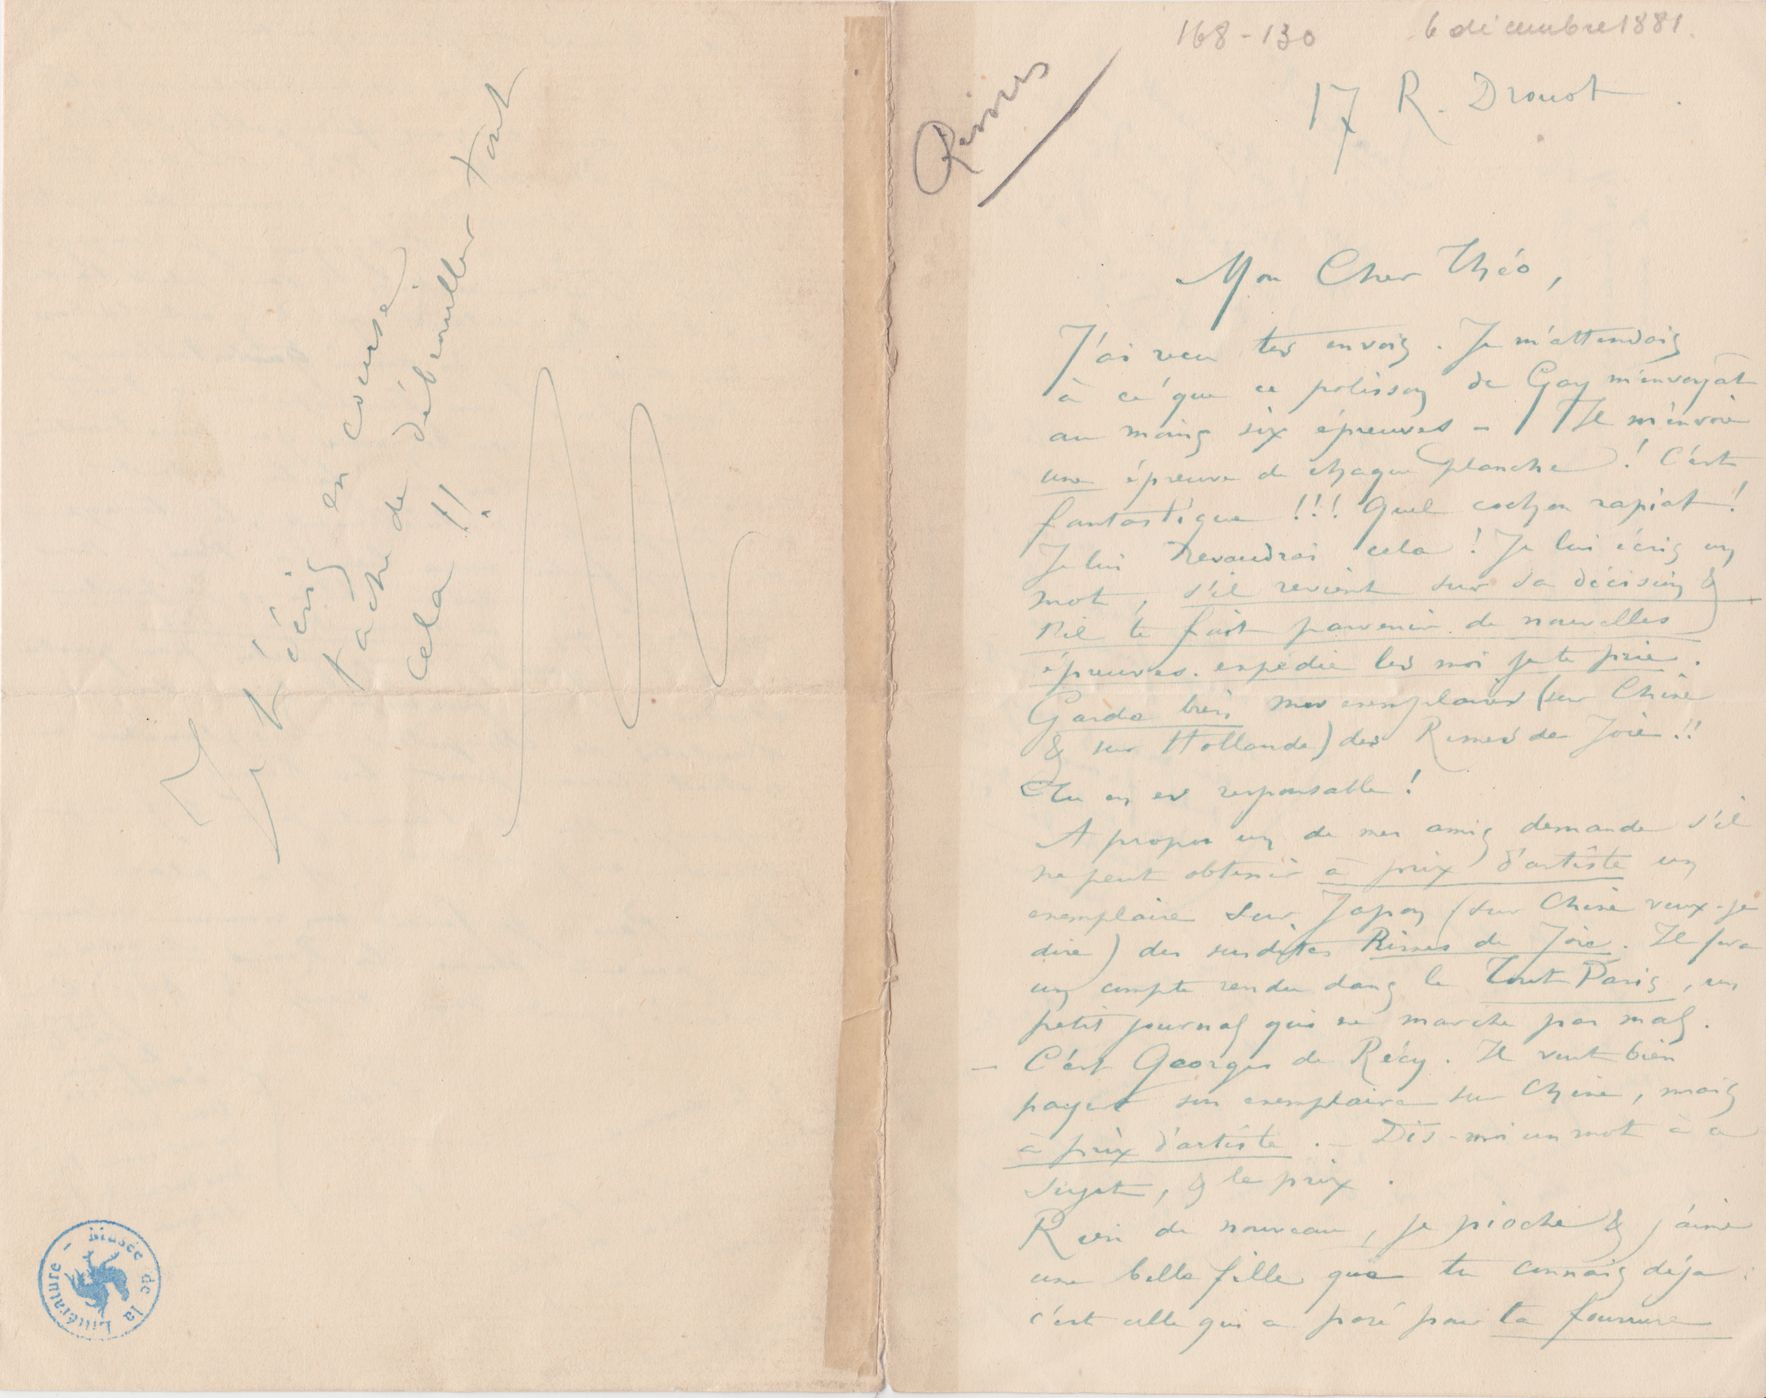 168-130
6 décembre 1881.
Rimes
17 R. Drouot.
Mon Cher Théo,
J'ai recu tes envois. Je m'attendais
à ce que ce polisson de Gay m'envoyât
au moins six épreuves – Il m'envoie
une épreuve de chaque planche! C'est
fantastique!!! Quel cochon rapiat!
Je lui revaudrai cela! Je lui écris un
mot, s'il revient sur sa décision &
s'il te fait parvenir de nouvelles
épreuves. expédie les moi je te prie.
Garde bien mes exemplaires (sur Chine
& sur Hollande) des Rimes de Joie!!
Tu en es responsable!
A propos un de mes amis demande s'il
ne peut obtenir à prix d'artiste un
exemplaire sur Japon (sur Chine veux-je
dire) des susdites Rimes de Joie. Il fera
un compte rendu dans le Tout Paris, un
petit journal qui ne marche pas mal.
– C'est Georges de Récy. Il veut bien
payer son exemplaire sur Chine, mais
à prix d'artiste. – Dis-moi un mot à ce
sujet, & le prix.
Rien de nouveau, je pioche & j'aime
une belle fille que tu connais déja:
c'est celle qui a posé pour ta fourrure
Je t'écris en course.
tache de débrouiller tout
cela!!
Musée de la Littérature –